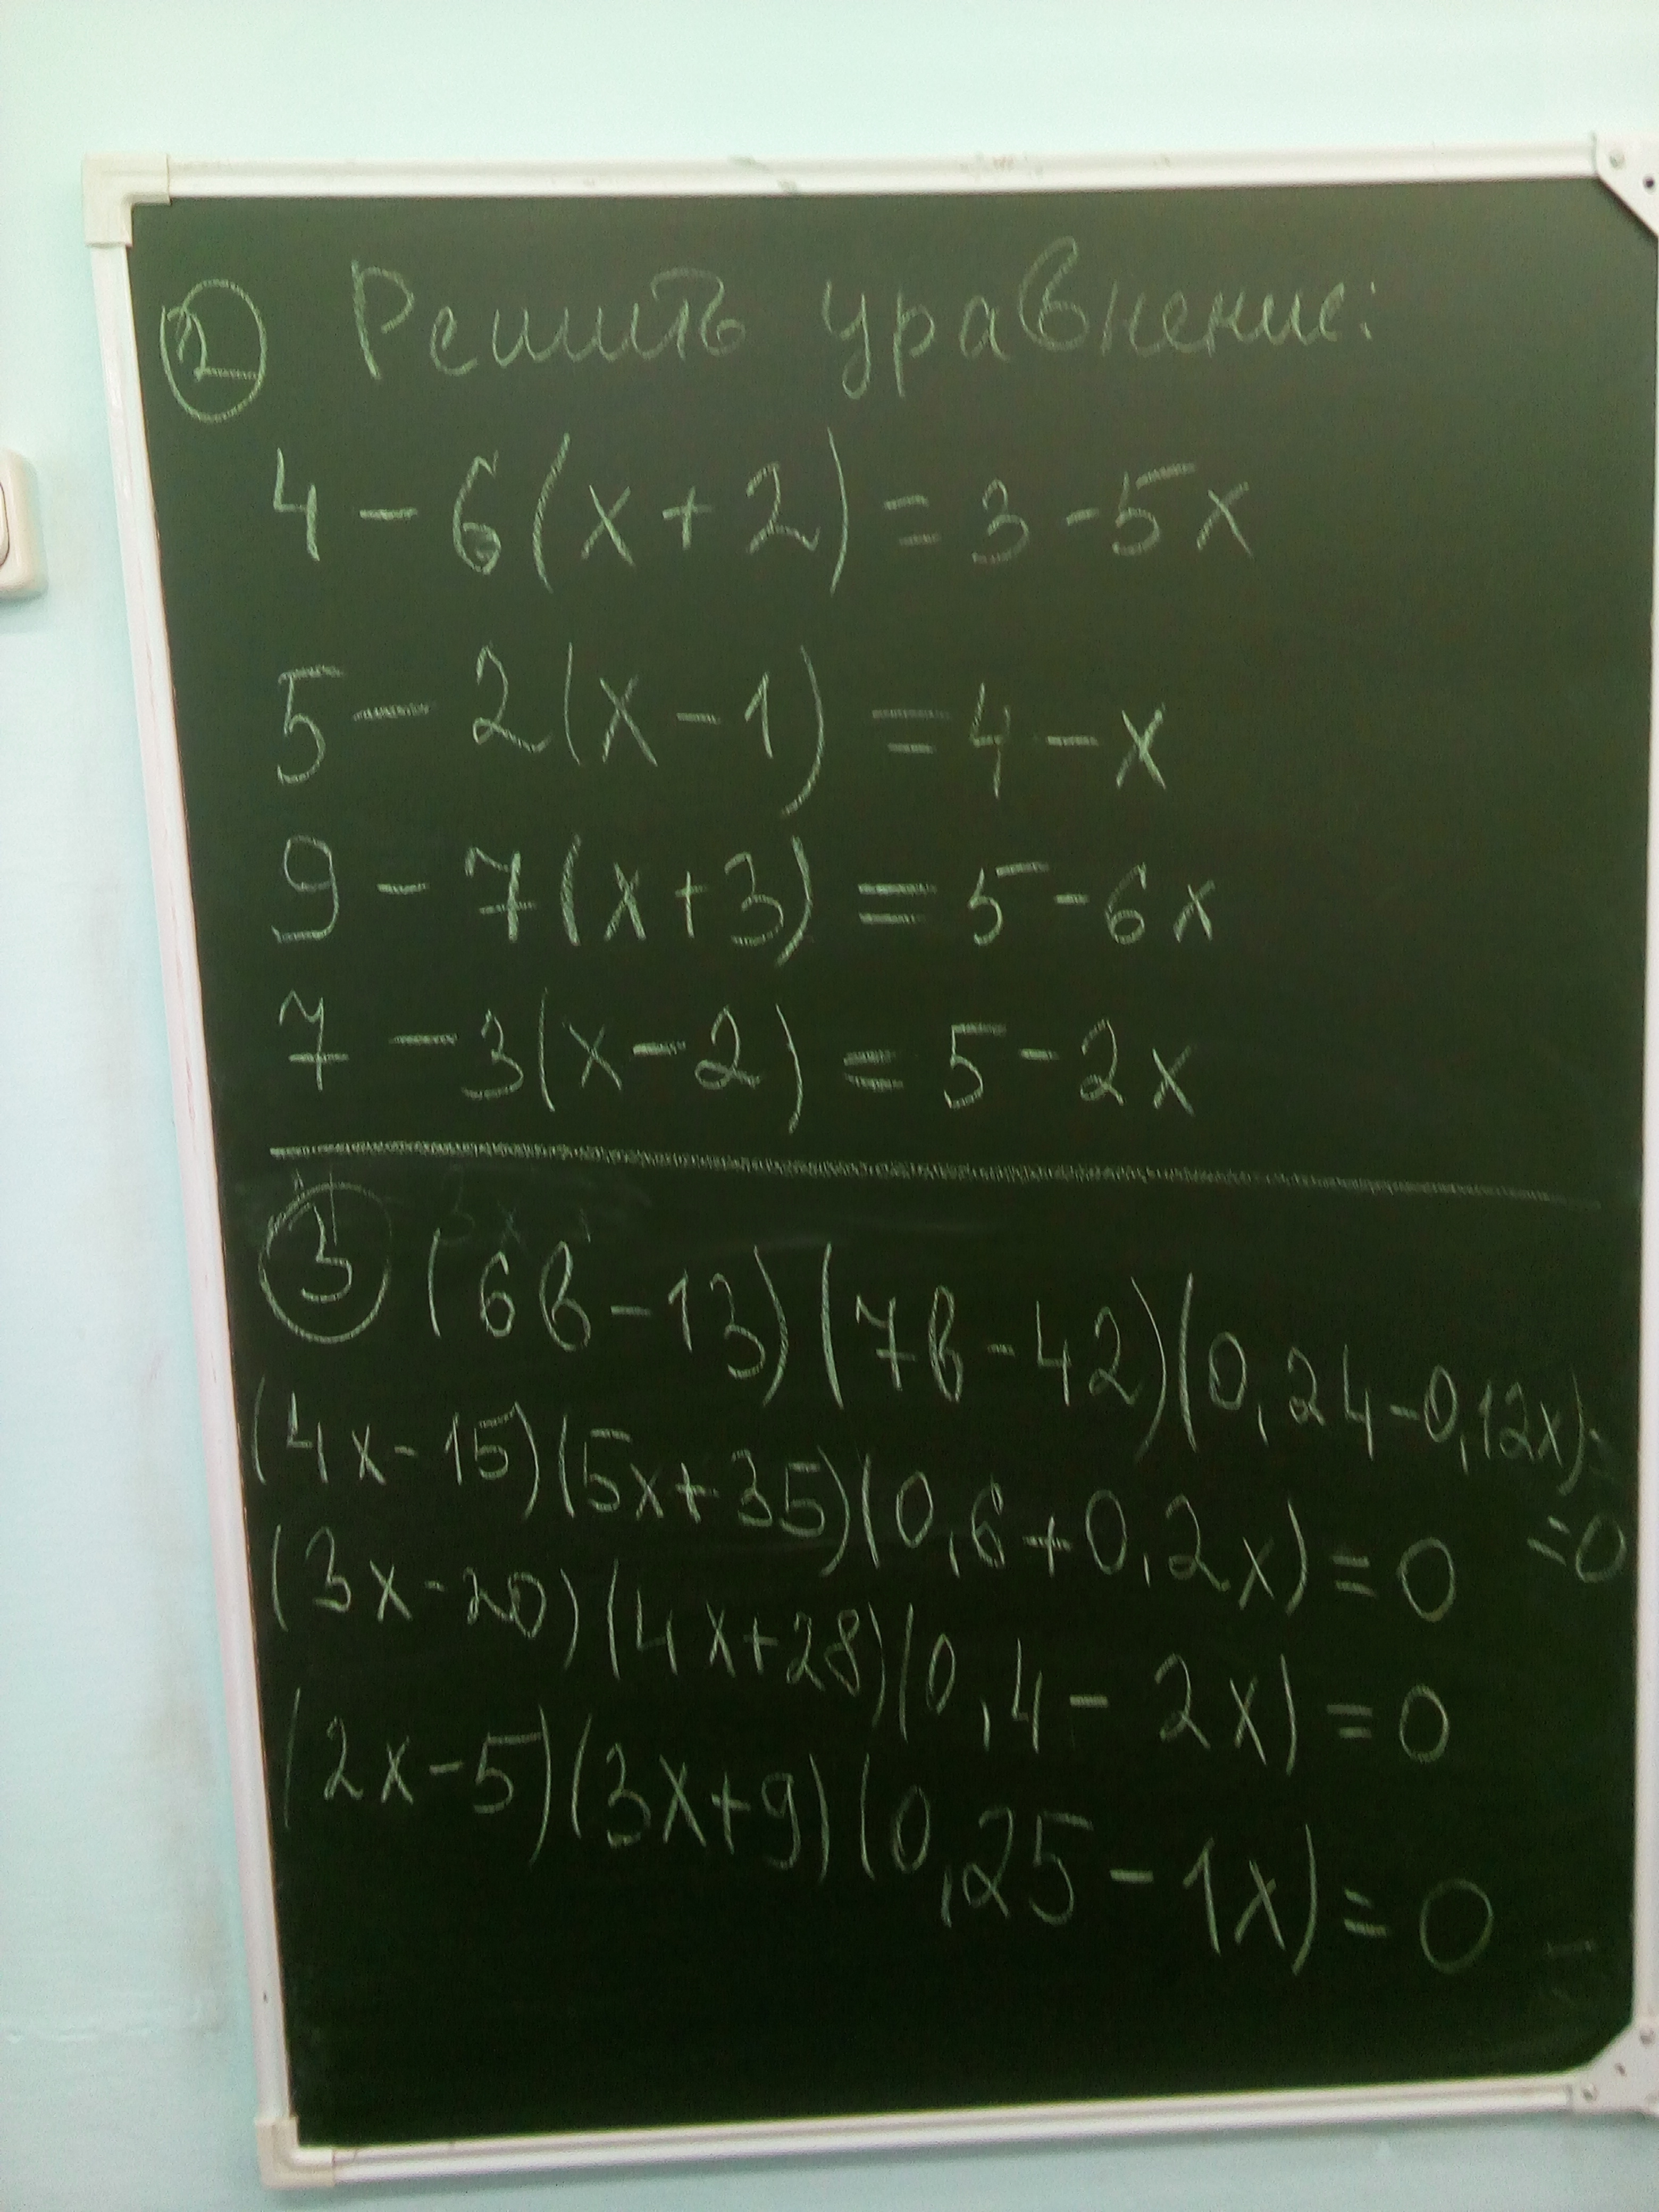 2 Решить уравнение:
4 - 6(x+2) = 3 - 5x
5 - 2(x-1) = 4 - x
9 - 7(x+3) = 5 - 6x
7 - 3(x-2) = 5 - 2x
3 (6в-13)(7в-42)(0,24-0,12x)=
=0
(4x-15)(5x+35)(0,6+0,2x)=0
(3x-20)(4x+28)(0,4-2x)=0
(2x-5)(3x+9)(0,25-1x)=0